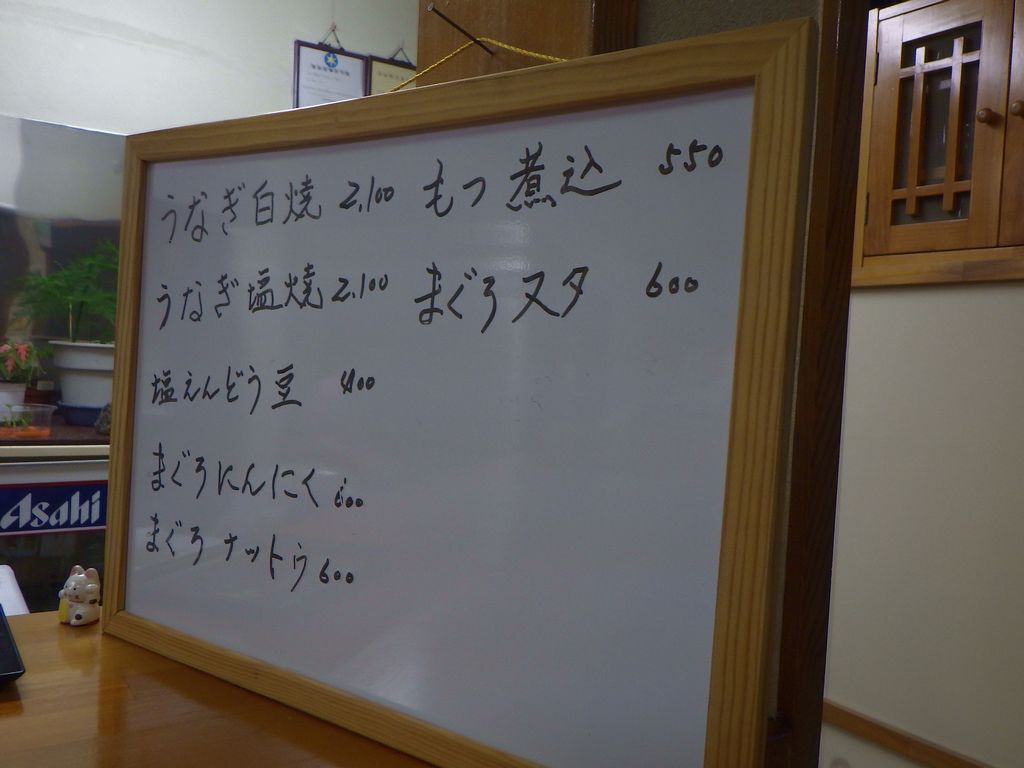 うなぎ白焼 2,100
うなぎ塩焼 2,100
塩えんどう豆 400
まぐろにんにく 600
まぐろナットウ 600
もつ煮込 550
まぐろヌタ 600
Asahi